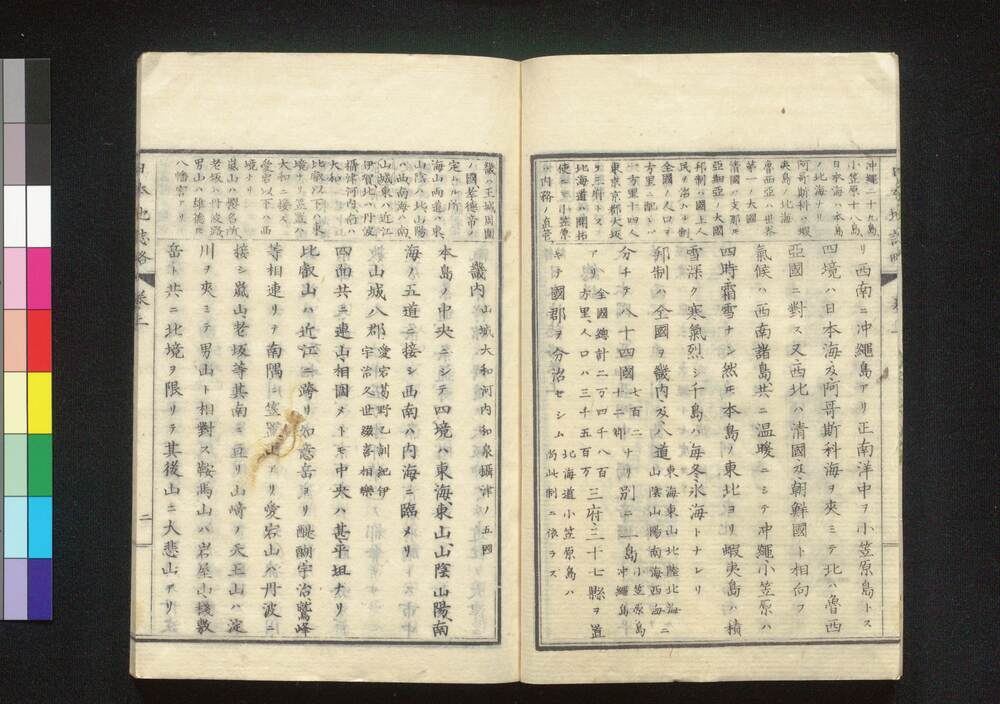 沖繩三十九島
小笠原十八島
日本海ハ本島
ノ北海ナリ
阿哥斯科ハ蝦
夷島ノ北海
魯西亞ハ世界
第一ノ大國
清國ハ支那ニテ
亞細亞ノ大國
邦制ハ國土人
民ヲ治ムル制
全國ノ人口ヲ
方里ニ配レハ
一方里千四人
東京京都大坂
ヲ三府トス
北海道ハ開拓
使ニテ小笠原
ハ内務ノ直管
リ西南ニ沖繩島アリ正南洋中ヲ小笠原島トス
四境ハ日本海及阿哥斯科海ヲ夾ミテ北ハ魯西
亞國ニ對ス又西北ハ清國及朝鮮國ト相向フ
氣候ハ西南諸島共ニ温暖ニシテ沖繩小笠原ハ
四時霜雪ナシ然𪜈本島ノ東北ヨリ蝦夷島ハ積
雪深ク寒氣烈シ千島ハ海冬氷海トナレリ
邦制ハ全國ヲ畿内及八道東海東山北陸北海山陰山陽南海西海ニ
分チテ八十四國七百十二郡ナリ別ニ二島小笠原島沖繩島
アリ全國總計二万四千八百方里人口ハ三千五百万三府三十七縣ヲ置
キテ國郡ヲ分治セシム北海道小笠原島ハ尚此制ニ依ラス
畿ハ王城周圍
ノ國孝德帝ノ
定ムル所
海山両道ハ東
山陰ハ北山陽
ハ西南海ハ南
山城東ハ近江
伊賀北ハ丹波
攝津河内南ハ
大和
比叡以下ハ東
境ナリ笠置ハ
大和ニ接ス
愛宕以下ハ西
境ナリ
嵐山ハ櫻名所
老坂ハ丹波路
男山ハ雄德トモ
八幡宮アリ
畿内山城大和河内和泉攝津ノ五國
本島ノ中央ニシテ四境ハ東海東山山陰山陽南
海ノ五道ニ接シ西南ハ内海ニ臨メリ
山城八郡愛宕葛野乙訓紀伊宇治久世綴喜相樂
四面共ニ連山相圍メトモ中央ハ甚平坦ナリ
比叡山ハ近江ニ跨リ如意岳ヨリ醍醐宇治鷲峰
等相連リテ南隅ニ笠置山アリ愛宕山ハ丹波ニ
接シ嵐山老坂等其南ニ亘リ山崎ノ天王山ハ淀
川ヲ夾ミテ男山ト相對ス鞍馬山ハ岩屋山棧敷
岳ト共ニ北境ヲ限リテ其後山ニ大悲山アリ
日本地誌略 巻二
二